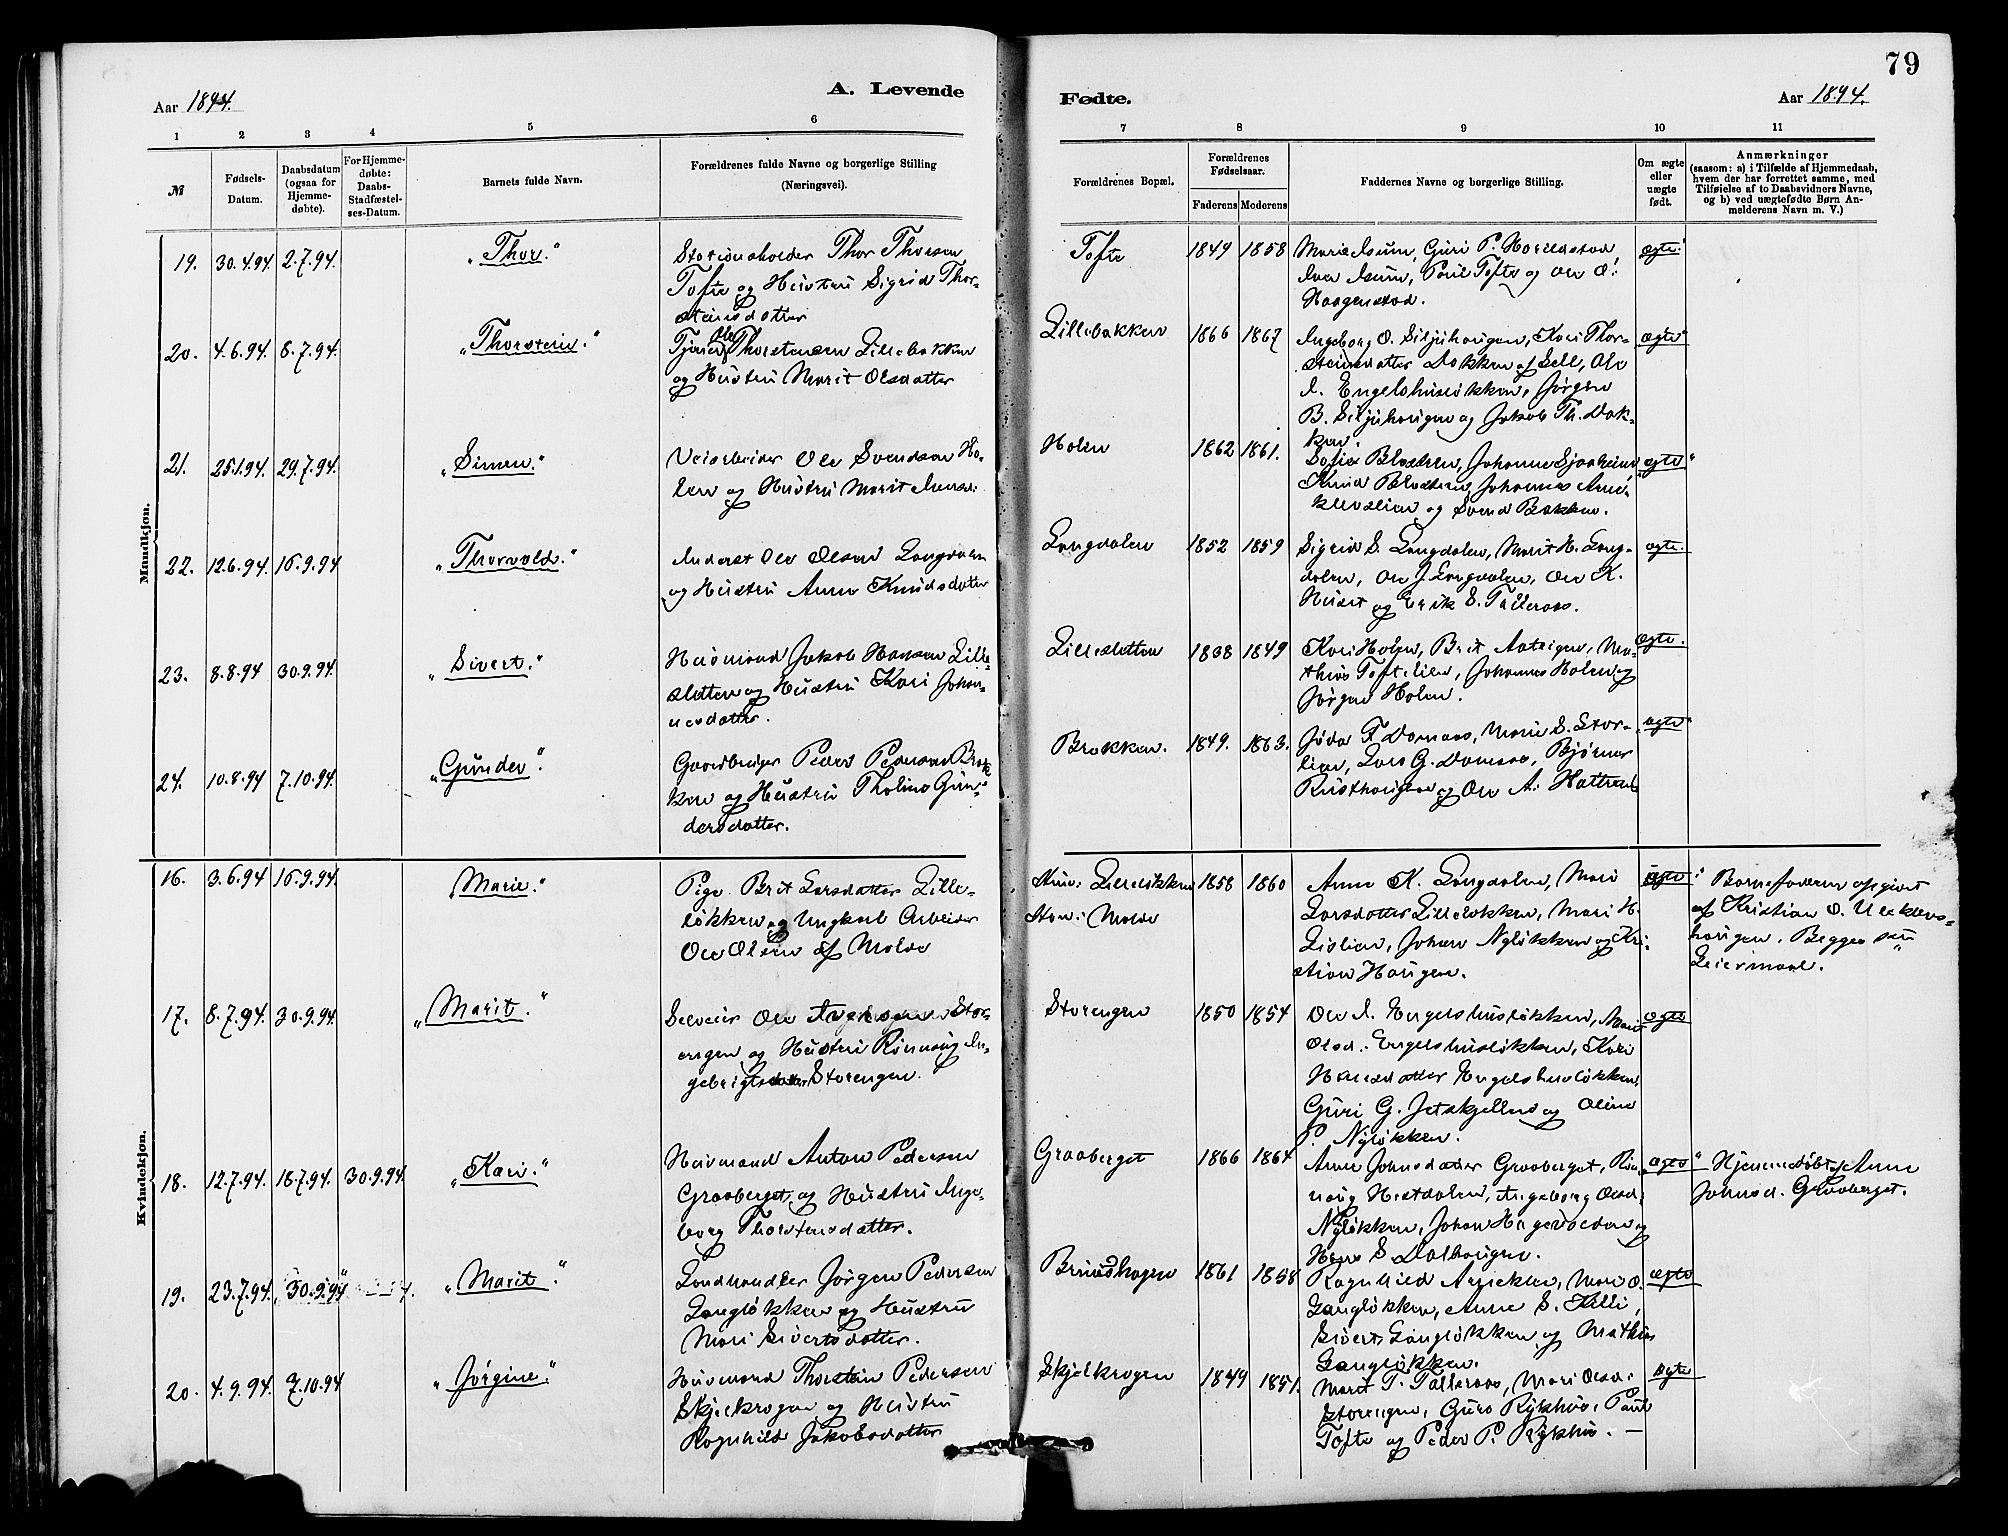 79
A. Levende Fødte.
Aar 1894. Aar 1894.
1 2 3 4 5 6 7 8 9 10 11
№
Fødsels-Datum.
Daabsdatum (ogsaa for Hjemmedøbte).
For Hjemmedøbte: Daabs-Stadfæstelses-Datum.
Barnets fulde Navn.
Forældrenes fulde Navne og borgerlige Stilling (Næringsvei).
Forældrenes Bopæl.
Forældrenes Fødselsaar.
Faderens Moderens
Faddernes Navne og borgerlige Stilling.
Om ægte eller uægte født.
Anmærkninger
(saasom: a) i Tilfælde af Hjemmedaab,
hvem der har forrettet samme, med
Tilføielse af to Daabsvidners Navne,
og b) ved uægtefødte Børn Anmelderens Navn m. V.)
Mandkjøn.
19. 30.4.94. 2.7.94. "Thor."
Stationsholder Thor Thorsen
Tofte og Hustru Sigrid Thor-
steinsdatter
Tofte 1849 1858
Marie Isum, Guri P. Horildstad,
Iver Isum, Paul Tofte og Ole O.
Haagenstad.
ægte
20. 4.6.94. 8.7.94. "Thorstein."
Thorstensen Lillebakken
og Hustru Marit Olsdatter
Lillebakken 1866 1867
Ingeborg O. Siljuhaugen, Kari Thor-
steinsdatter Dokken af Sell, Ole
I. Engelshusløkken, Jørgen
B. Siljuhaugen og Jakob Th. Dok-
ken.
ægte
21. 25.1.94. 29.7.94. "Simen."
Veiarbeider Ole Svendsen Ho-
len og Hustru Marit Iversd.
Holen 1862 1861.
Johannes
og Svend Bakken.
ægte
22. 12.6.94. 16.9.94 "Thorvald."
Inderst Ole Olsen Langdalen
og Hustru Anne Knudsdatter
Langdalen 1852 1859
Sigrid S. Langdalen, Marit H. Lang-
dalen, Ole J. Langdalen, Ole K.
Huset og Erik S. Talleraas.
ægte.
23. 8.8.94 30.9.94. "Sivert."
Husmand Jakob Hansen Lille-
sletten og Hustru Kari Johan-
nesdatter.
Lillesletten 1838 1849
Kari Holen, Brit, Ma-
thias Toftelien, Johannes Holen og
Jørgen Holen.
ægte.
24. 10.8.94 7.10.94. "Gunder."
Gaardbruger Peder Pedersen Brak-
ken og Hustru Tholine Gun-
dersdatter.
Brakken. 1849. 1863.
F. Domaas, Marie S. Stor-
lien, Lars G. Domaas, Bjørner
Rusthaugen og Ole A.
ægte
Kvindekjøn.
16. 3.6.94 16.9.94. Marie."
Pige Brit Larsdatter Lille-
løkken og Ungkarl Arbeider
Ole Olsen af Molde
Hun: Lilleløkken 1858 1860
Han: Molde
Anne K. Langdalen, Mari
Larsdatter Lilleløkken, Mari H.
Lislien, Johan Nyløkken og Kri-
stian Haugen.
Barnefaderen opgivet
af Kristian O.
haugen. Begges
Leiermaal.
17. 8.7.94. 30.9.94. "Marit."
Selveier Ole Stor-
engen og Hustru Rønnaug In-
gebrigtsdatter Storengen.
Storengen 1850 1854
Ole I. Engelshusløkken, Mari
Olsd. Engelshusløkken, Kari
Hansdatter Engelshusløkken,
Guri G. og Oline
P. Nyløkken.
ægte
18. 12.7.94. 18.7.94. 30.9.94. "Kari."
Husmand Anton Pedersen
Graaberget og Hustru Inge-
borg Thorstensdatter.
Graaberget 1866 1864
Anne Johnsdatter Graaberget, Røn-
naug Hestdalen, Ingeborg Olsd.
Nyløkken, Johan og
Hans S. Dalhaugen.
ægte
Hjemmedøbt af Anne
Johnsd. Graaberget.
19. 23.7.94. 30.9.94 "Marit."
Landhandler Jørgen Pedersen
Langløkken og Hustru
Mari Sivertsdatter.
1861 1858
Ragnhild, Mari O.
Langløkken, Anne S. Killi,
Sivert Langløkken og Mathias
Langløkken.
ægte
20. 4.9.94. 7.10.94 "Jørgine."
Husmand Thorstein Pedersen
Skjelkrogen og Hustru
Ragnhild Jakobsdatter
Skjelkrogen 1849 1851.
Marit T. Talleraas, Mari Olsd.
Storengen, Guro Rykhus, Paul
Tofte og Peder P. Rykhus. —
ægte